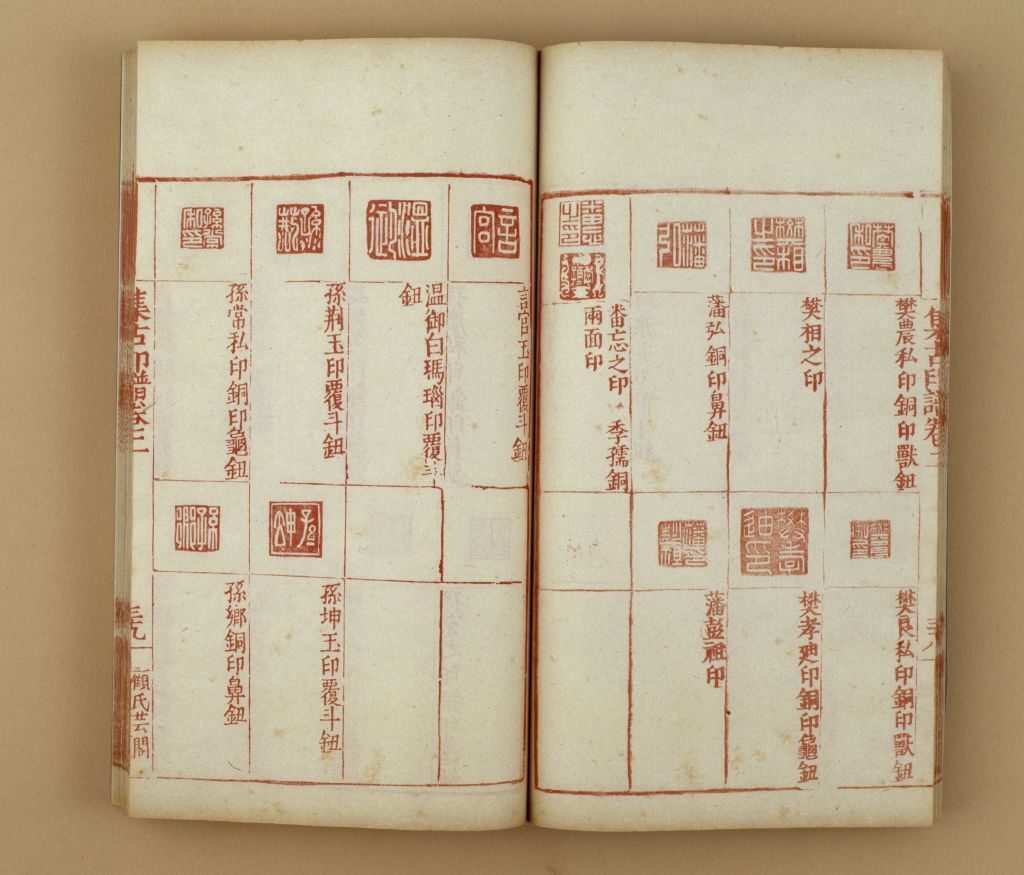 樊農私印銅印獸鈕
樊相之印
藩弘銅印鼻鈕
畨忘之印 季孺銅
兩面印
樊良私印銅印獸鈕
樊孝㢠印銅印龜鈕
藩彭祖印
言宮玉印覆斗鈕
温御白瑪瑙印覆斗
鈕
孫荆玉印覆斗鈕
孫常私印銅印龜鈕
孫坤玉印覆斗鈕
孫鄉銅印鼻鈕
集古印譜卷三
三九
顧氏芸閣